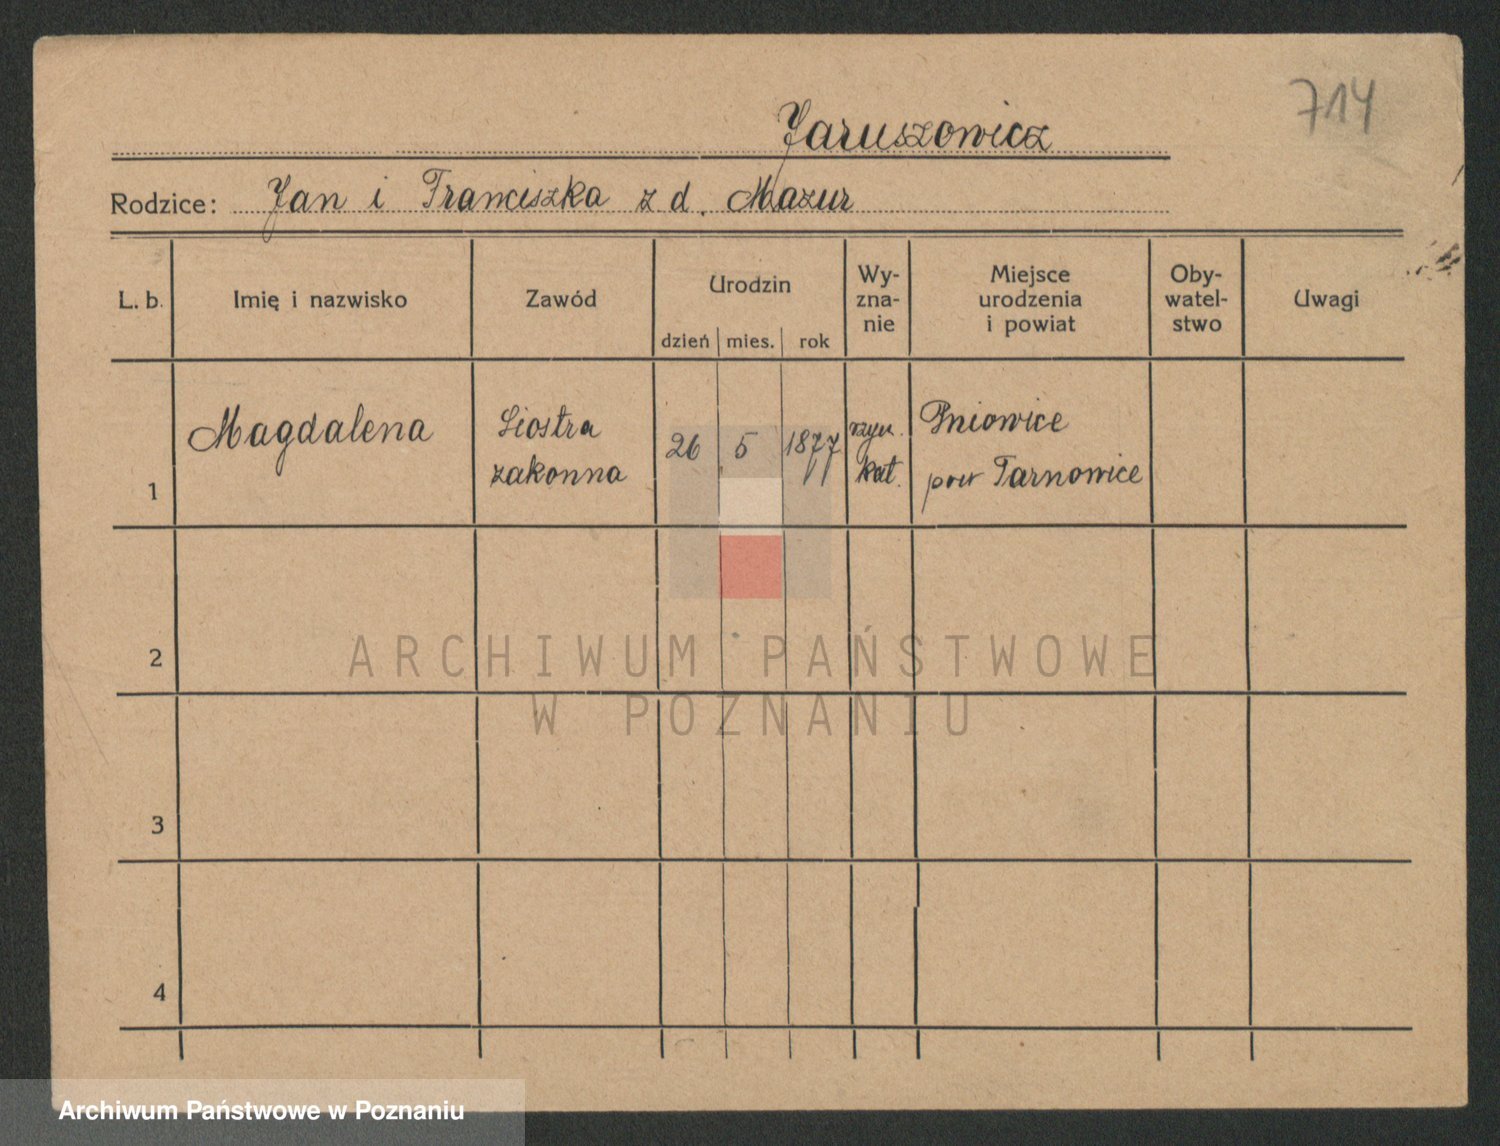 714
Jaruszowicz
Rodzice: Jan i Franciszka z d. Mazur
L. b. Imię i nazwisko Zawód Urodzin Wy- Miejsce Oby- Uwagi
zna- urodzenia watel-
nie i powiat stwo
dzień mies. rok
Magdalena Siostra 26 5 1877 rzym. Pniowice
1 zakonna kat. pow Tarnowice
2
ARCHIWUM PAŃSTWOWE
W POZNANIU
3
4
Archiwum Państwowe w Poznaniu